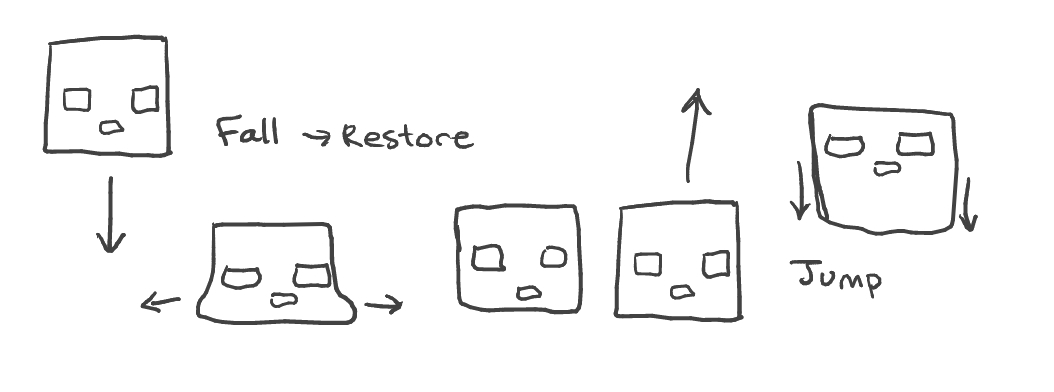 Fall → Restore
Jump